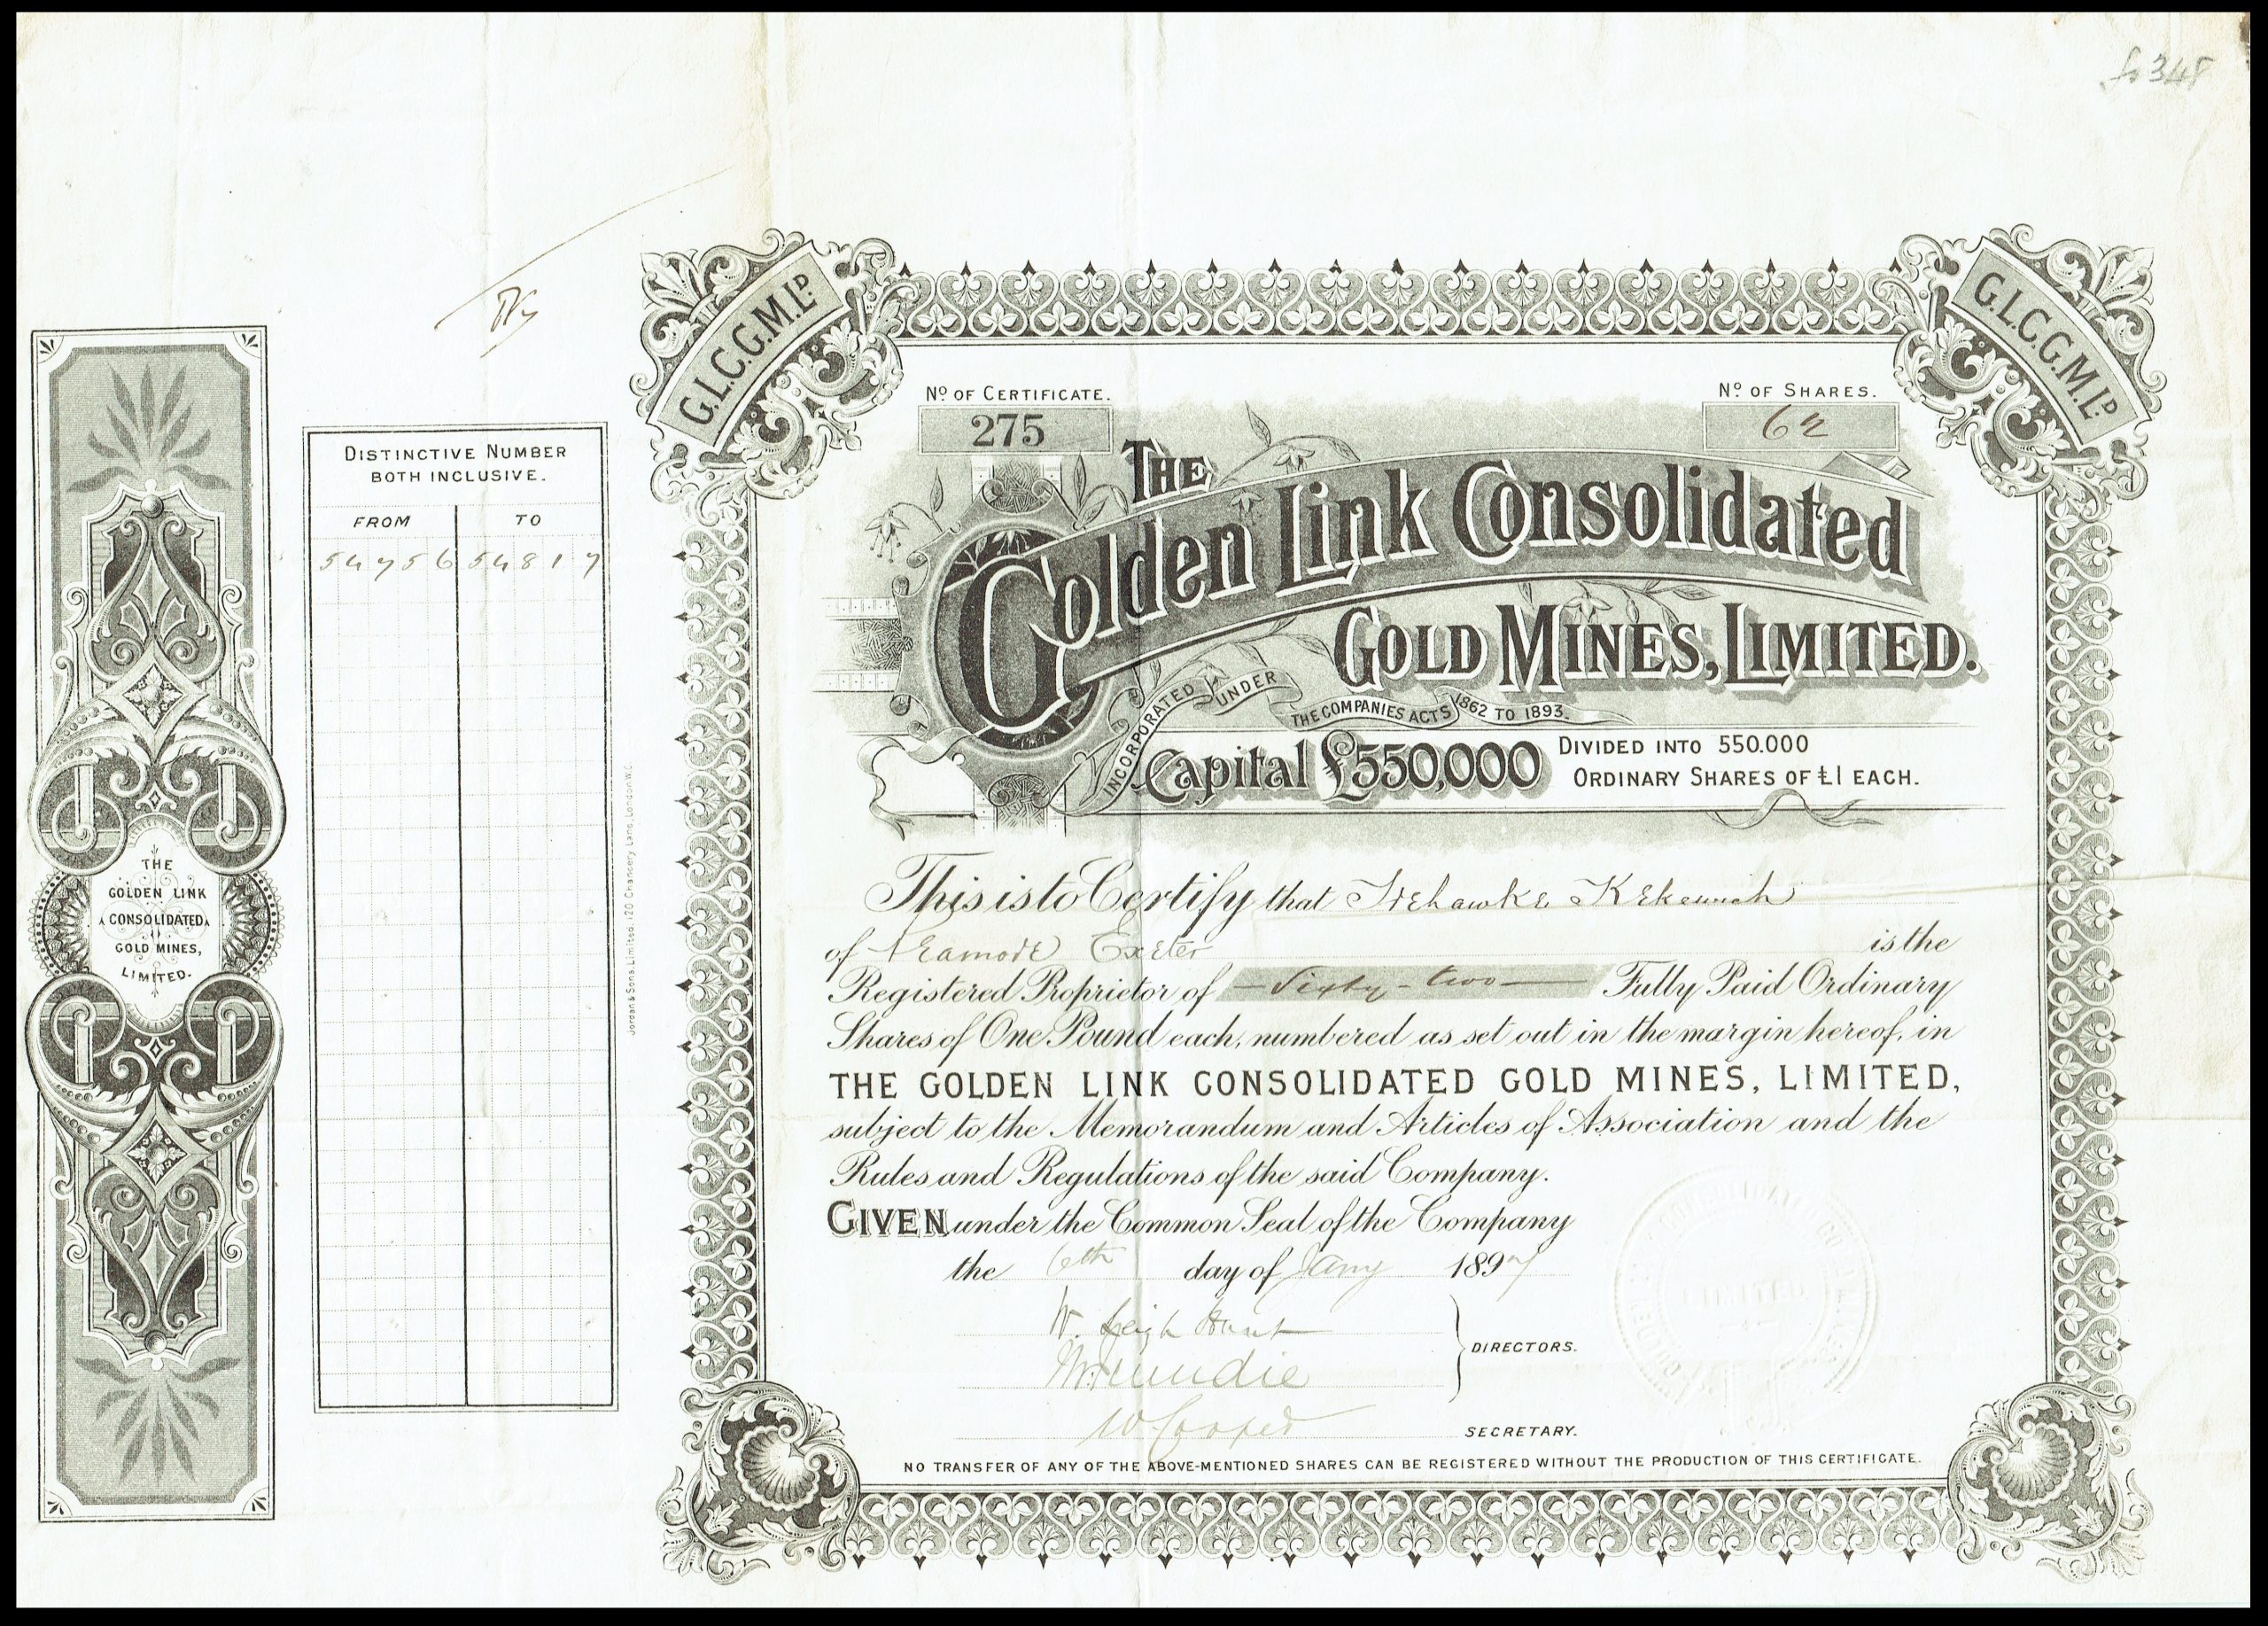 fo 348
G.L.C.G.M.LD.
G.L.C.G.M.LD.
No OF CERTIFICATE.
275
No OF SHARES.
62
THE
Golden Link Consolidated
GOLD MINES, LIMITED.
INCORPORATED UNDER THE COMPANIES ACTS 1862 TO 1893.
Capital £550,000 DIVIDED INTO 550.000
ORDINARY SHARES OF £1 EACH.
DISTINCTIVE NUMBER
BOTH INCLUSIVE.
FROM TO
54756 54817
THE
GOLDEN LINK
CONSOLIDATED
GOLD MINES,
LIMITED.
Jordan & Sons, Limited, 120 Chancery Lane, London W.C.
This is to Certify that Trehawke Kekewich
of Peamore Exeter is the
Registered Proprietor of — Sixty-two — Fully Paid Ordinary
Shares of One Pound each, numbered as set out in the margin hereof, in
THE GOLDEN LINK CONSOLIDATED GOLD MINES, LIMITED,
subject to the Memorandum and Articles of Association and the
Rules and Regulations of the said Company.
GIVEN under the Common Seal of the Company
the 6th day of Jany 1897
W. Leigh Hunt
DIRECTORS.
W Cooper
SECRETARY.
NO TRANSFER OF ANY OF THE ABOVE-MENTIONED SHARES CAN BE REGISTERED WITHOUT THE PRODUCTION OF THIS CERTIFICATE.